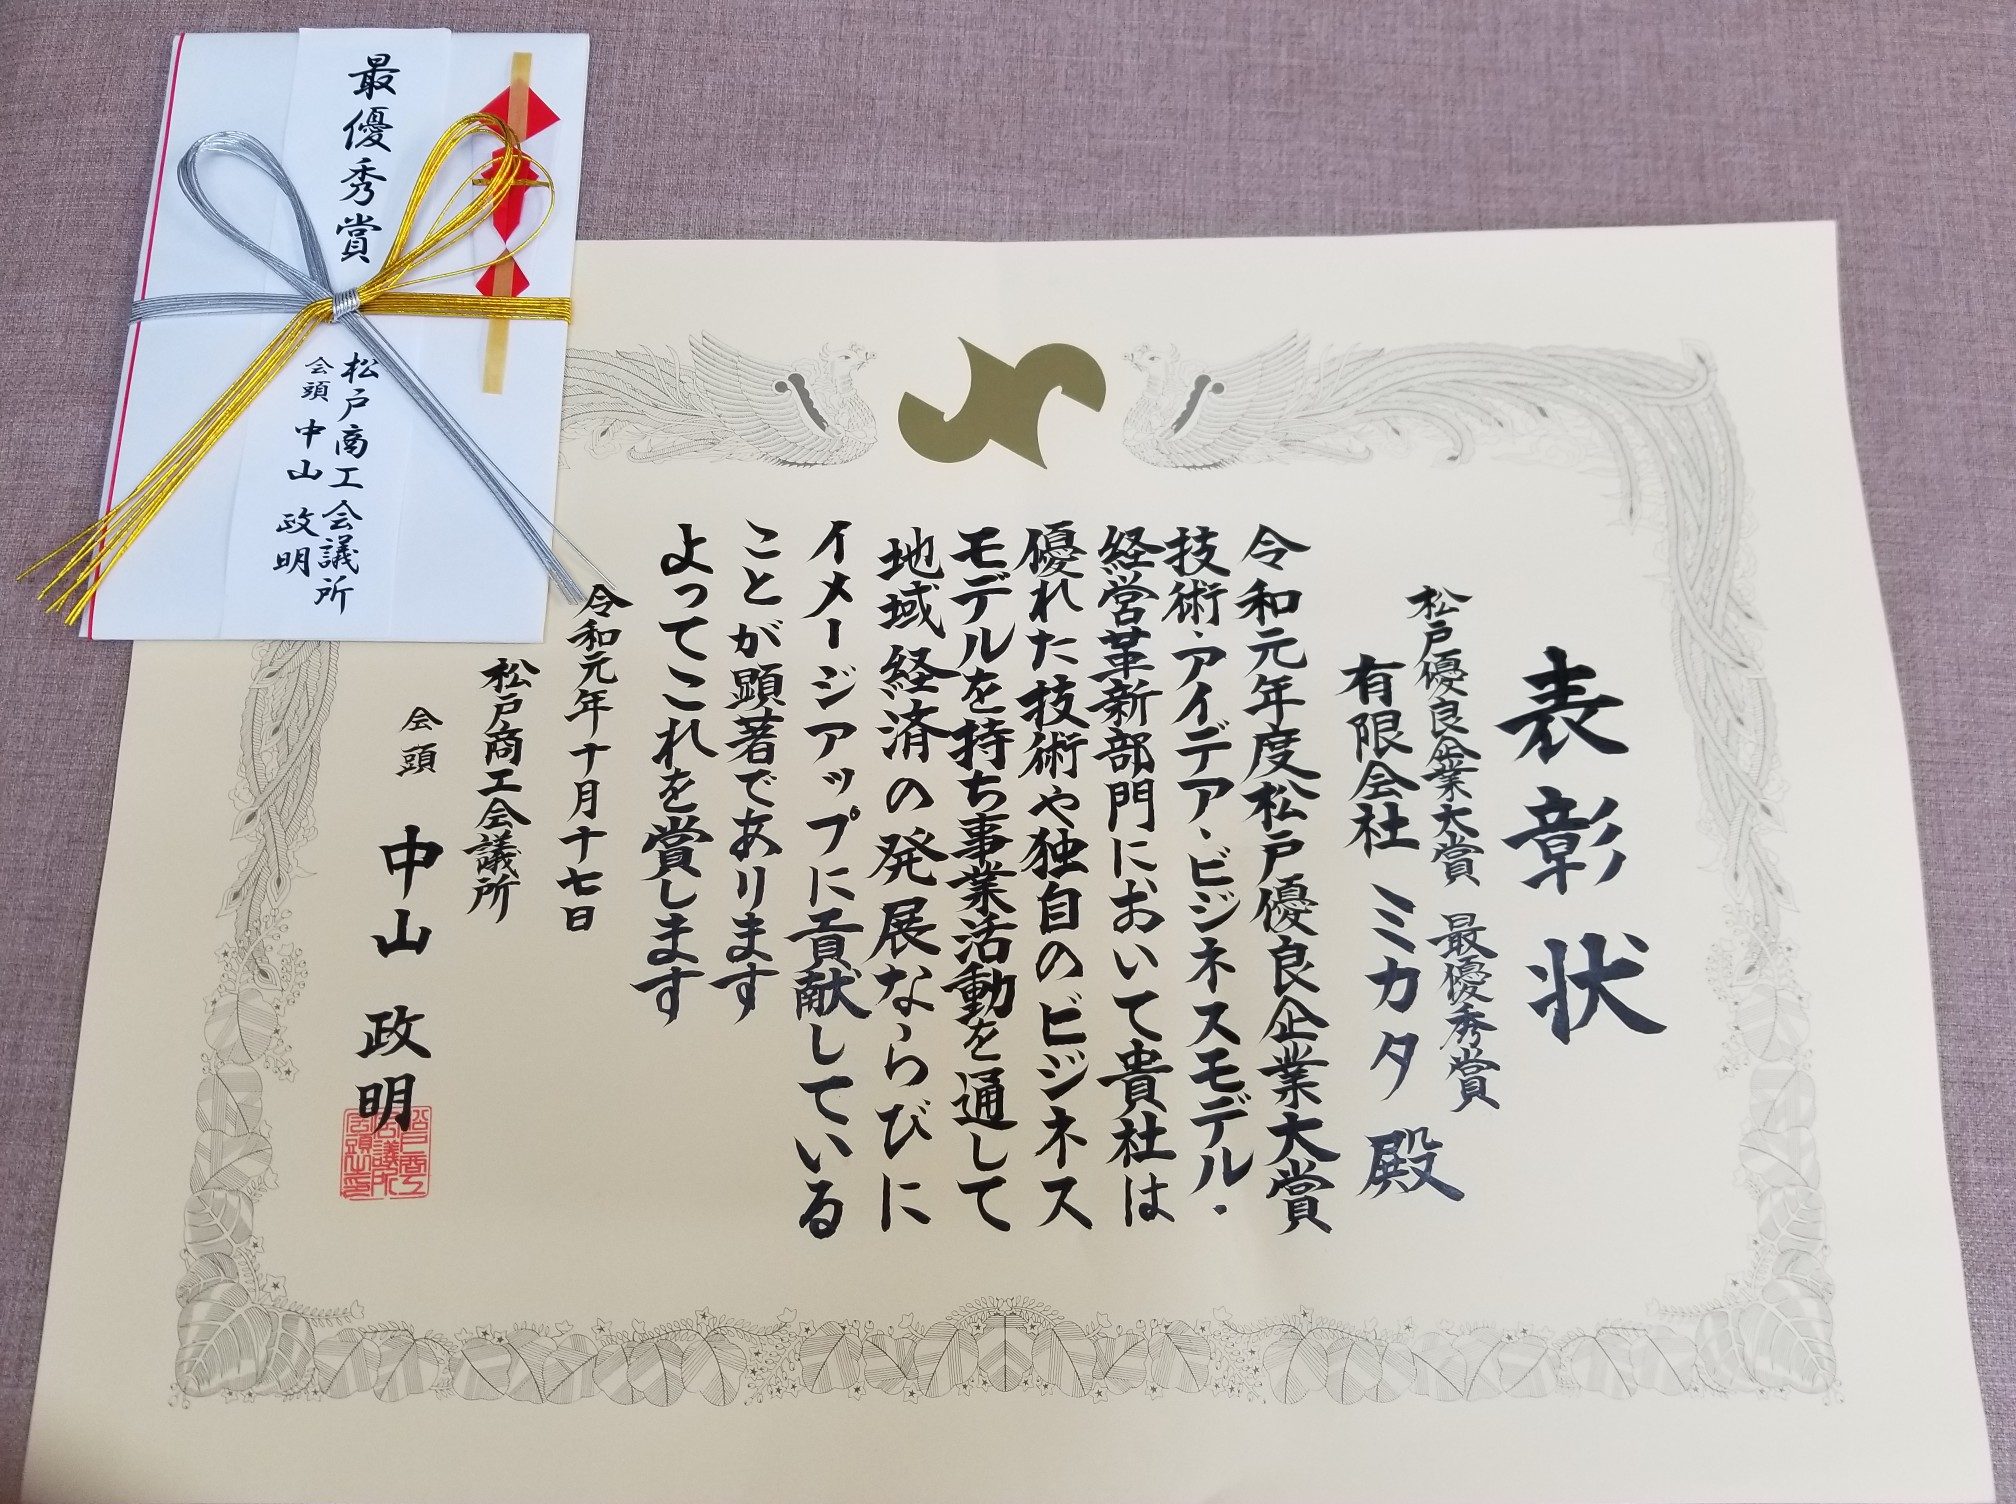 最優秀賞
松戸商工会議所
会頭 中山 政明
表彰状
松戸優良企業大賞 最優秀賞
有限会社 ミカタ 殿
令和元年度松戸優良企業大賞
技術・アイデア・ビジネスモデル・
経営革新部門において貴社は
優れた技術や独自のビジネス
モデルを持ち事業活動を通して
地域経済の発展ならびに
イメージアップに貢献している
ことが顕著であります
よってこれを賞します
令和元年十月十七日
松戸商工会議所
会頭 中山 政明
松戸商工
会議所
会頭之印